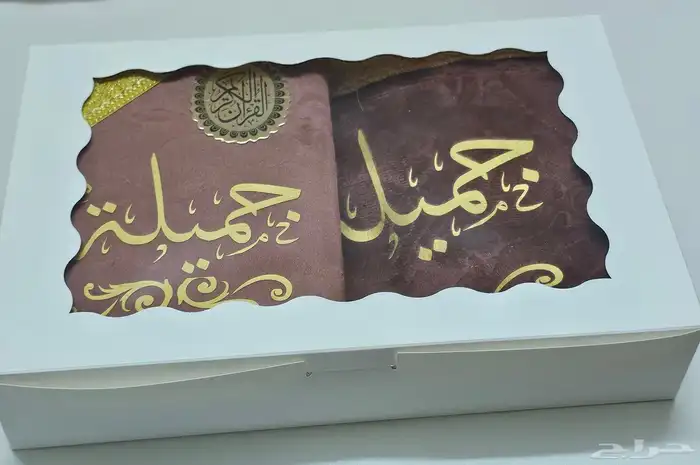 القرآن الكريم
جميل
جميلة
حراج